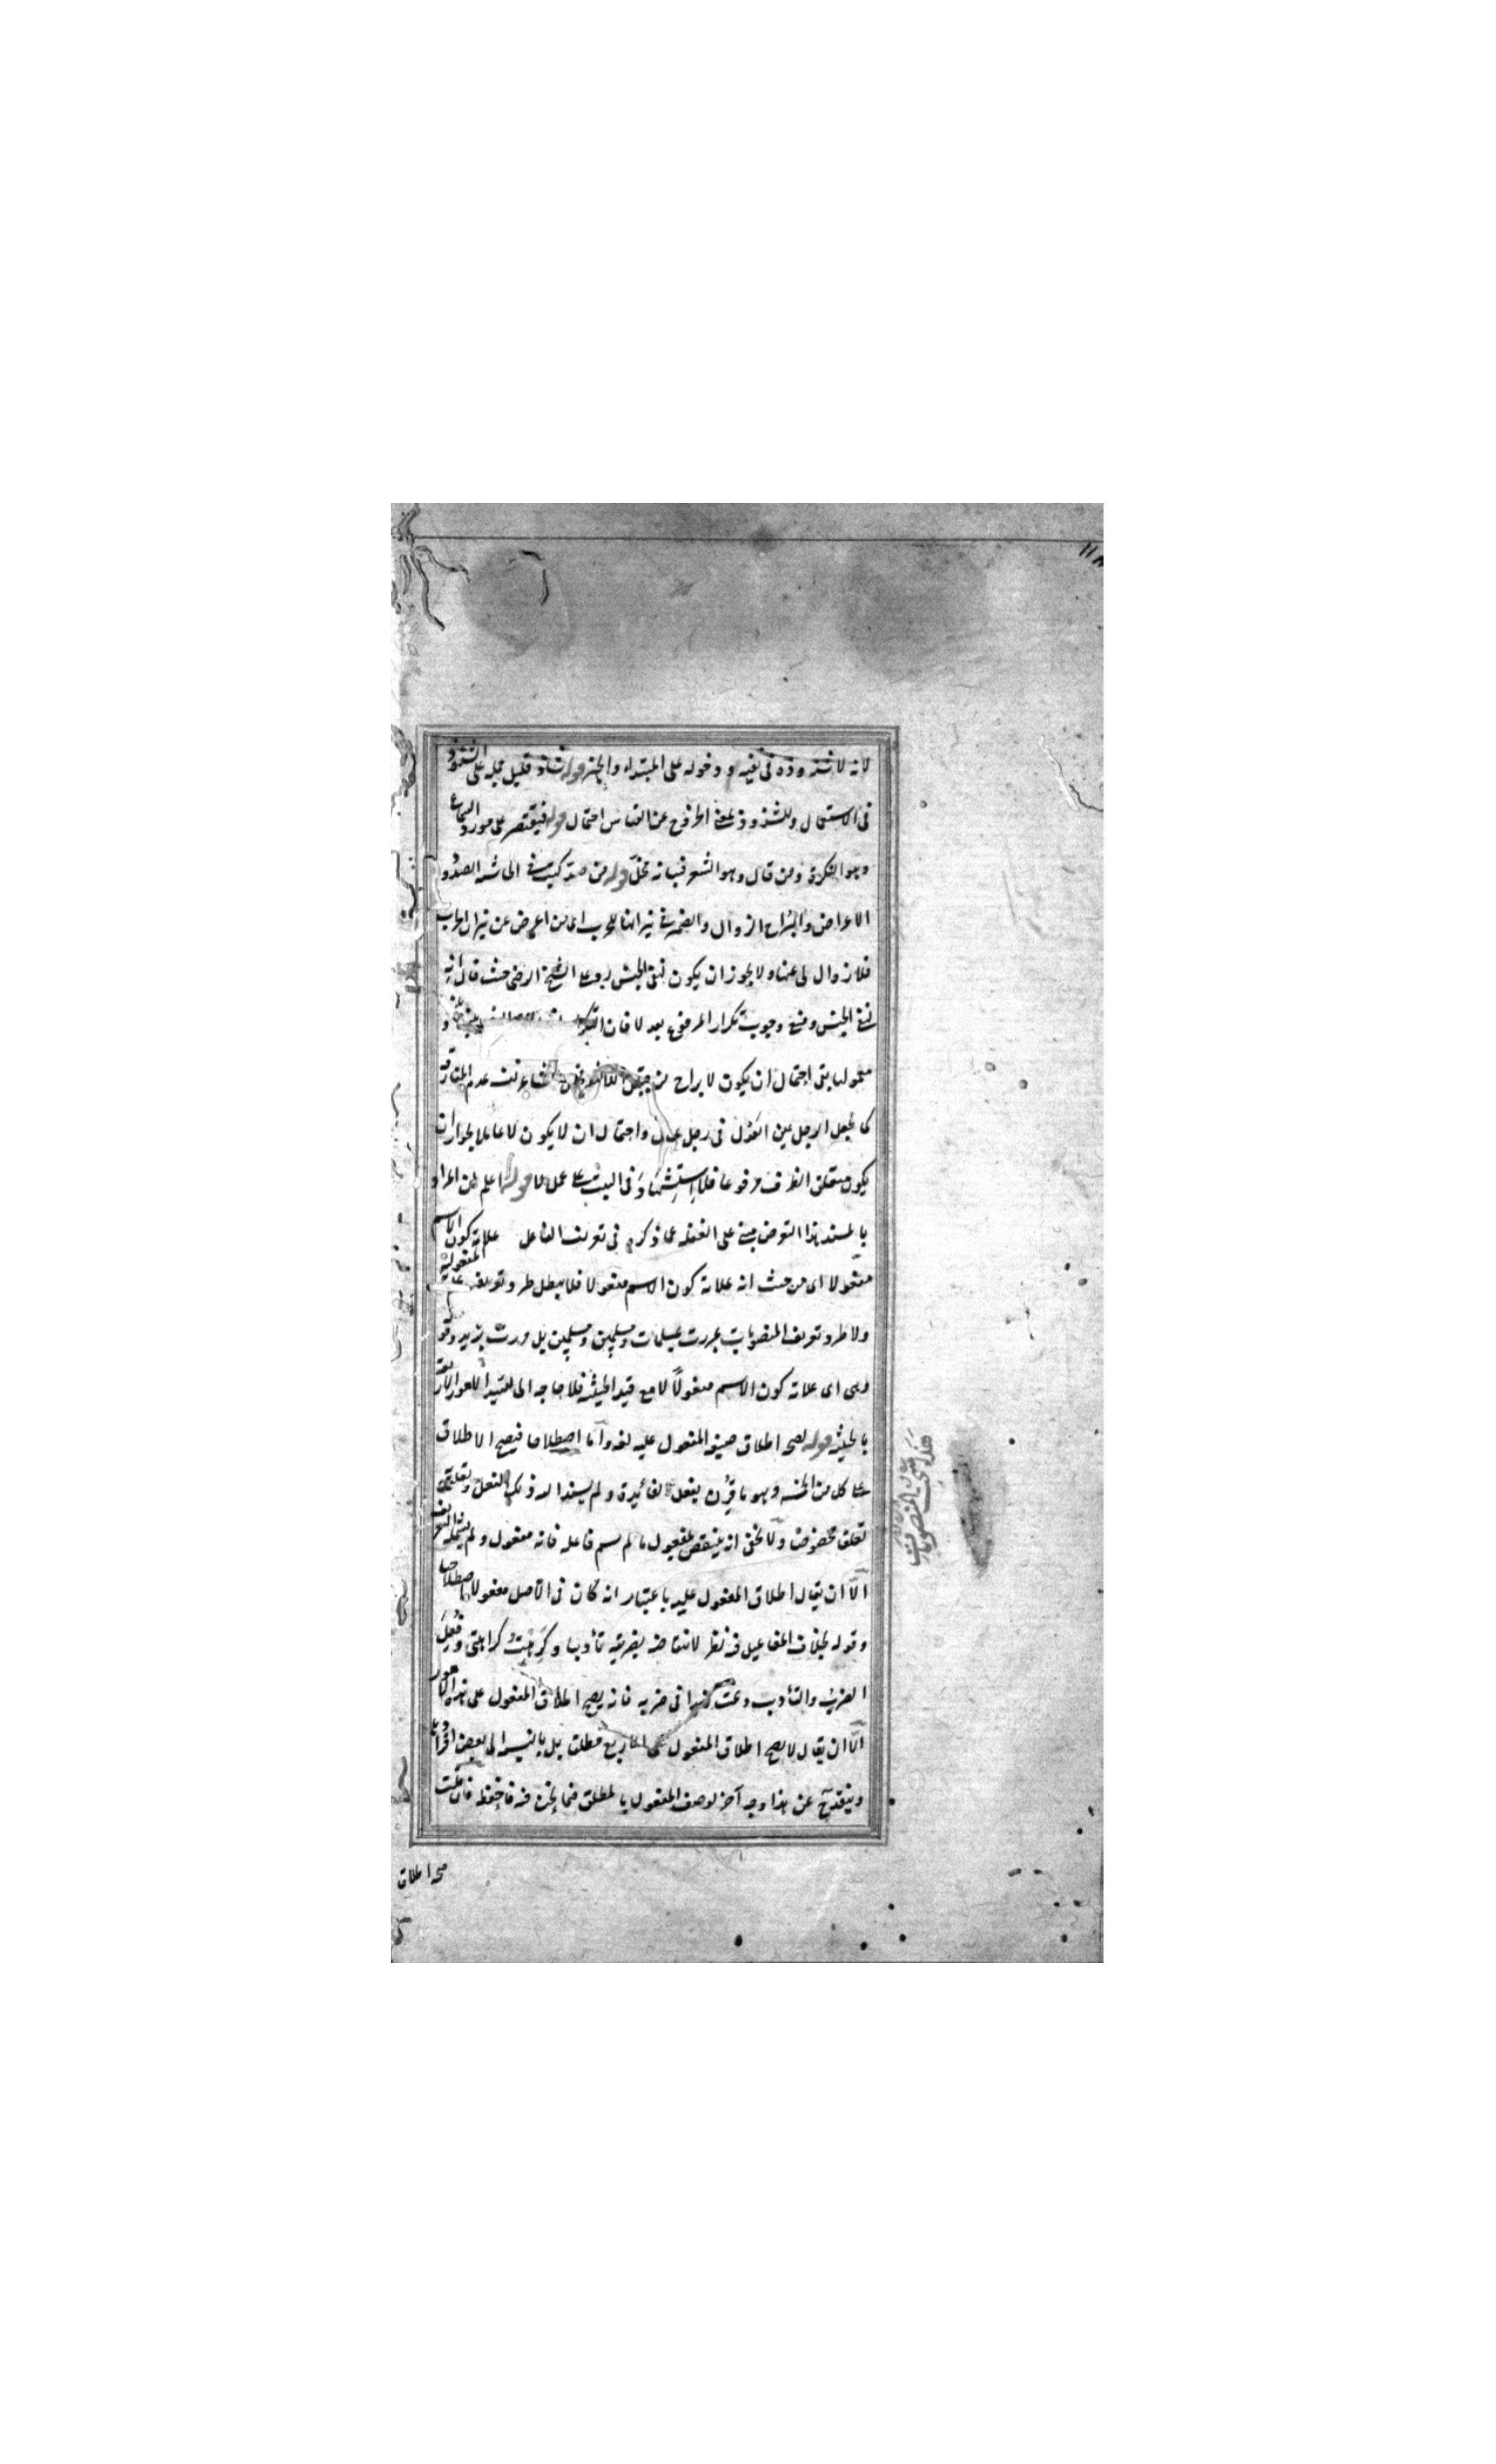 لانه لا شذوذه فى نفيه و دخوله على المبتداء والخبر قوله شاذ قليل حمله على الشذوذ
فى الاستعمال وللشذوذ بمعنى الخروج عن القياس احتمال قوله فيقتصر على مورد السماع
وهو النكرة ومن قال وهو الشعر فبيانه مخل قوله من صد كتب فى الحاشية الصدود
الاعراض والبراح الزوال والضمير فى نيرانها للحرب اى من اعرض عن نيران الحرب
فلا زوال لى عنها ولا يجوز ان يكون لنفى الجنس رد على الشيخ الرضى حيث قال انه
لنفى الجنس ومنع وجوب تكرار المرفوع بعد لا فان
معمولها بقى احتمال ان يكون لا براح من
كما يجعل الرجل عين العدل فى رجل عدل واحتمال ان لا يكون لا عاملا لجواز ان
يكون متعلق الظرف مرفوعا فلا استشهاد فى البيت على عمل لا قوله اعلم ان المراد
بالمسند هذا التعرض مبنى على الغفلة عما ذكره فى تعريف الفاعل علامة كون الاسم
مفعولا اى من حيث انه علامة كون الاسم مفعولا فلا يبطل طرد تعريف علامة المفعولية
ولا طرد تعريف المنصوبات بمررت بمسلمات ومسلمين ومسلمين بل ومررت بزيد وقوله
وهى اى علامة كون الاسم مفعولا لا مع قيد الحيثية فلا حاجة الى تقييد الامور الاربعة
بالحيثية قوله لصحة اطلاق صيغة المفعول عليه لغة وأما اصطلاحا فيصح الاطلاق
على كل من الخمسة وهو ما قرن بفعل لفائدة ولم يسند اليه ذلك الفعل وتعلق به
تعلق مخصوص ولا يخفى انه ينتقض بمفعول ما لم يسم فاعله فانه مفعول ولم يشمله التعريف
الا ان يقال اطلاق المفعول عليه باعتبار انه كان فى الاصل مفعولا اصطلاحا
وقوله بخلاف المفاعيل فيه نظر لانتقاضه بضربته تأديبا وكرهت كراهتى وفعل
الضرب والتأديب وعمت فى ضربه فانه يصح اطلاق المفعول على هذه الامور
الا ان يقال لا يصح اطلاق المفعول على الاربع مطلق بل بالنسبة الى بعض افراد
وينقدح عن هذا وجه آخر لوصف المفعول بالمطلق فيما نحن فيه فاحفظه فان قلت
صحة اطلاق
المنصوبات
١١٨